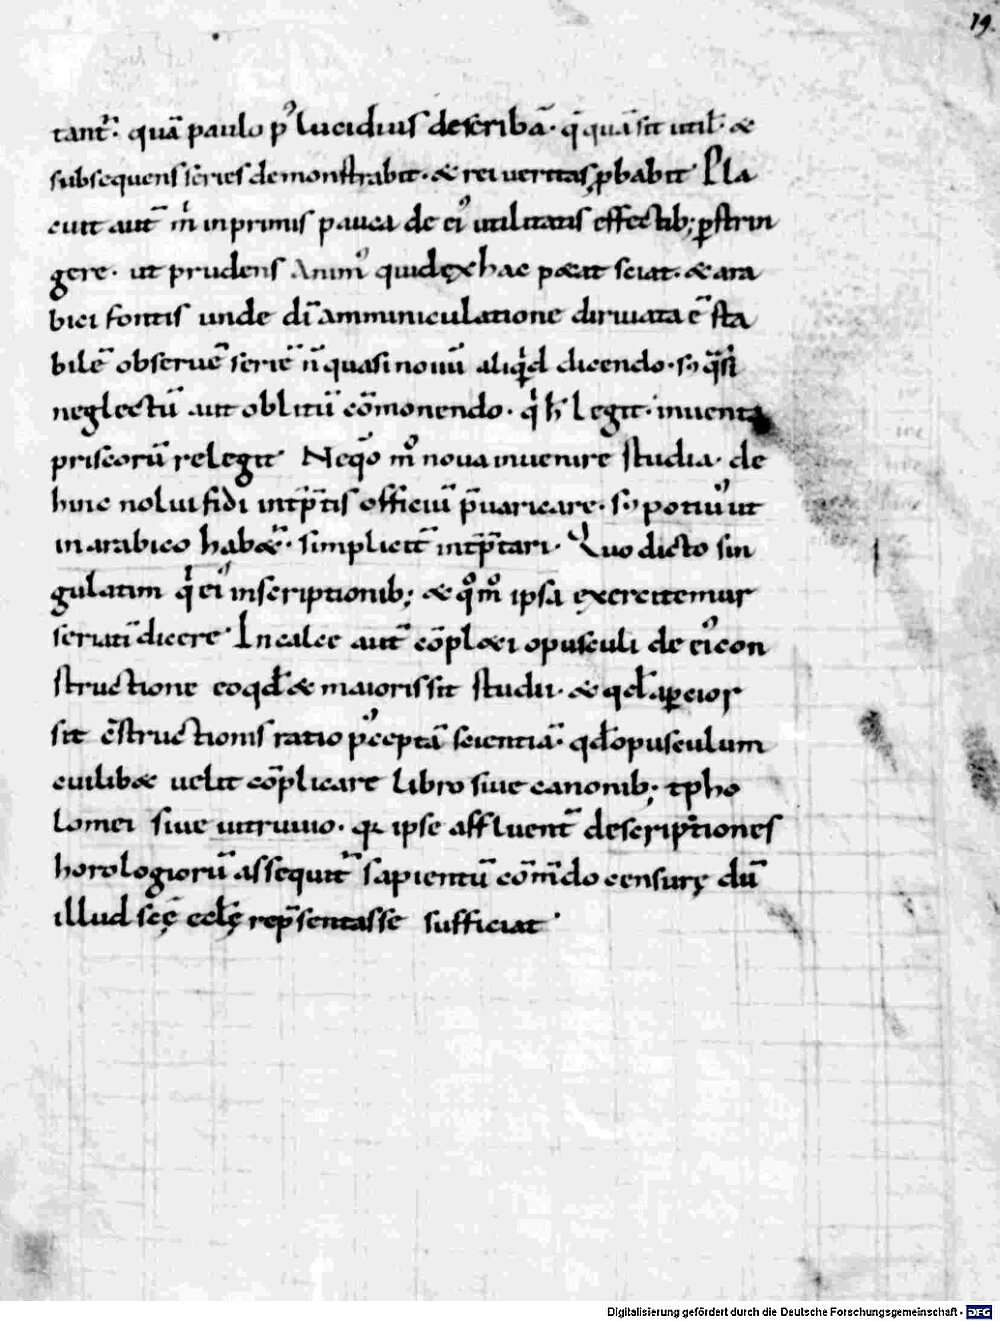 19.
tant᷑. quā paulo p᾿ lucidius describā. q̄ quā sit utił. &
subsequens series demonstrabit. & rei ueritas ꝓbabit Pla
cuit aut̄ m̍ inprimis pauca de ei᾿ utilitatis effectib; ꝑstrin
gere. ut prudens Anim᾿ quid ex hac poterit sciat. & ara
bici fontis unde di᷑ amminiculatione diriuata ē sta
bilē obseruē seriē n̄ quasi nouū aliq̍d dicendo. s᾿ q̄si
neglectū aut oblitū cōmonendo. q̍ h̄ legit. inuenta
priscorū relegit Neq̄o m̊ noua inuenire studia. de
hinc nolui fidi int̄p̄tis officiū p̄uaricare. s᾿ poti᾿ ut
in arabico habet᷑. simplicit̄ int̄p̄tari. Quo dicto sin
gulatim q̍ ei᾿ inscriptionib; & q̊m̊ ipsa exercitemur
seriatī dicere In calce aut̄ cōpl&i opusculi de ei᾿ con
structione eoqđ & maioris sit studii. & qđ aꝑcior
sit c̄structionis ratio p᾿ceptā scientiā. qđ opusculum
cuilib& uelit cōplicare libro siue canonib; tpho
lomei siue uitruuio. q̄ ipse affluent̄ descriptiones
horologiorū assequit᷑ sapientū cōm̄do censurę dū
illud scę̄ ecłę rep̄sentasse sufficiat
Digitalisierung gefördert durch die Deutsche Forschungsgemeinschaft - DFG